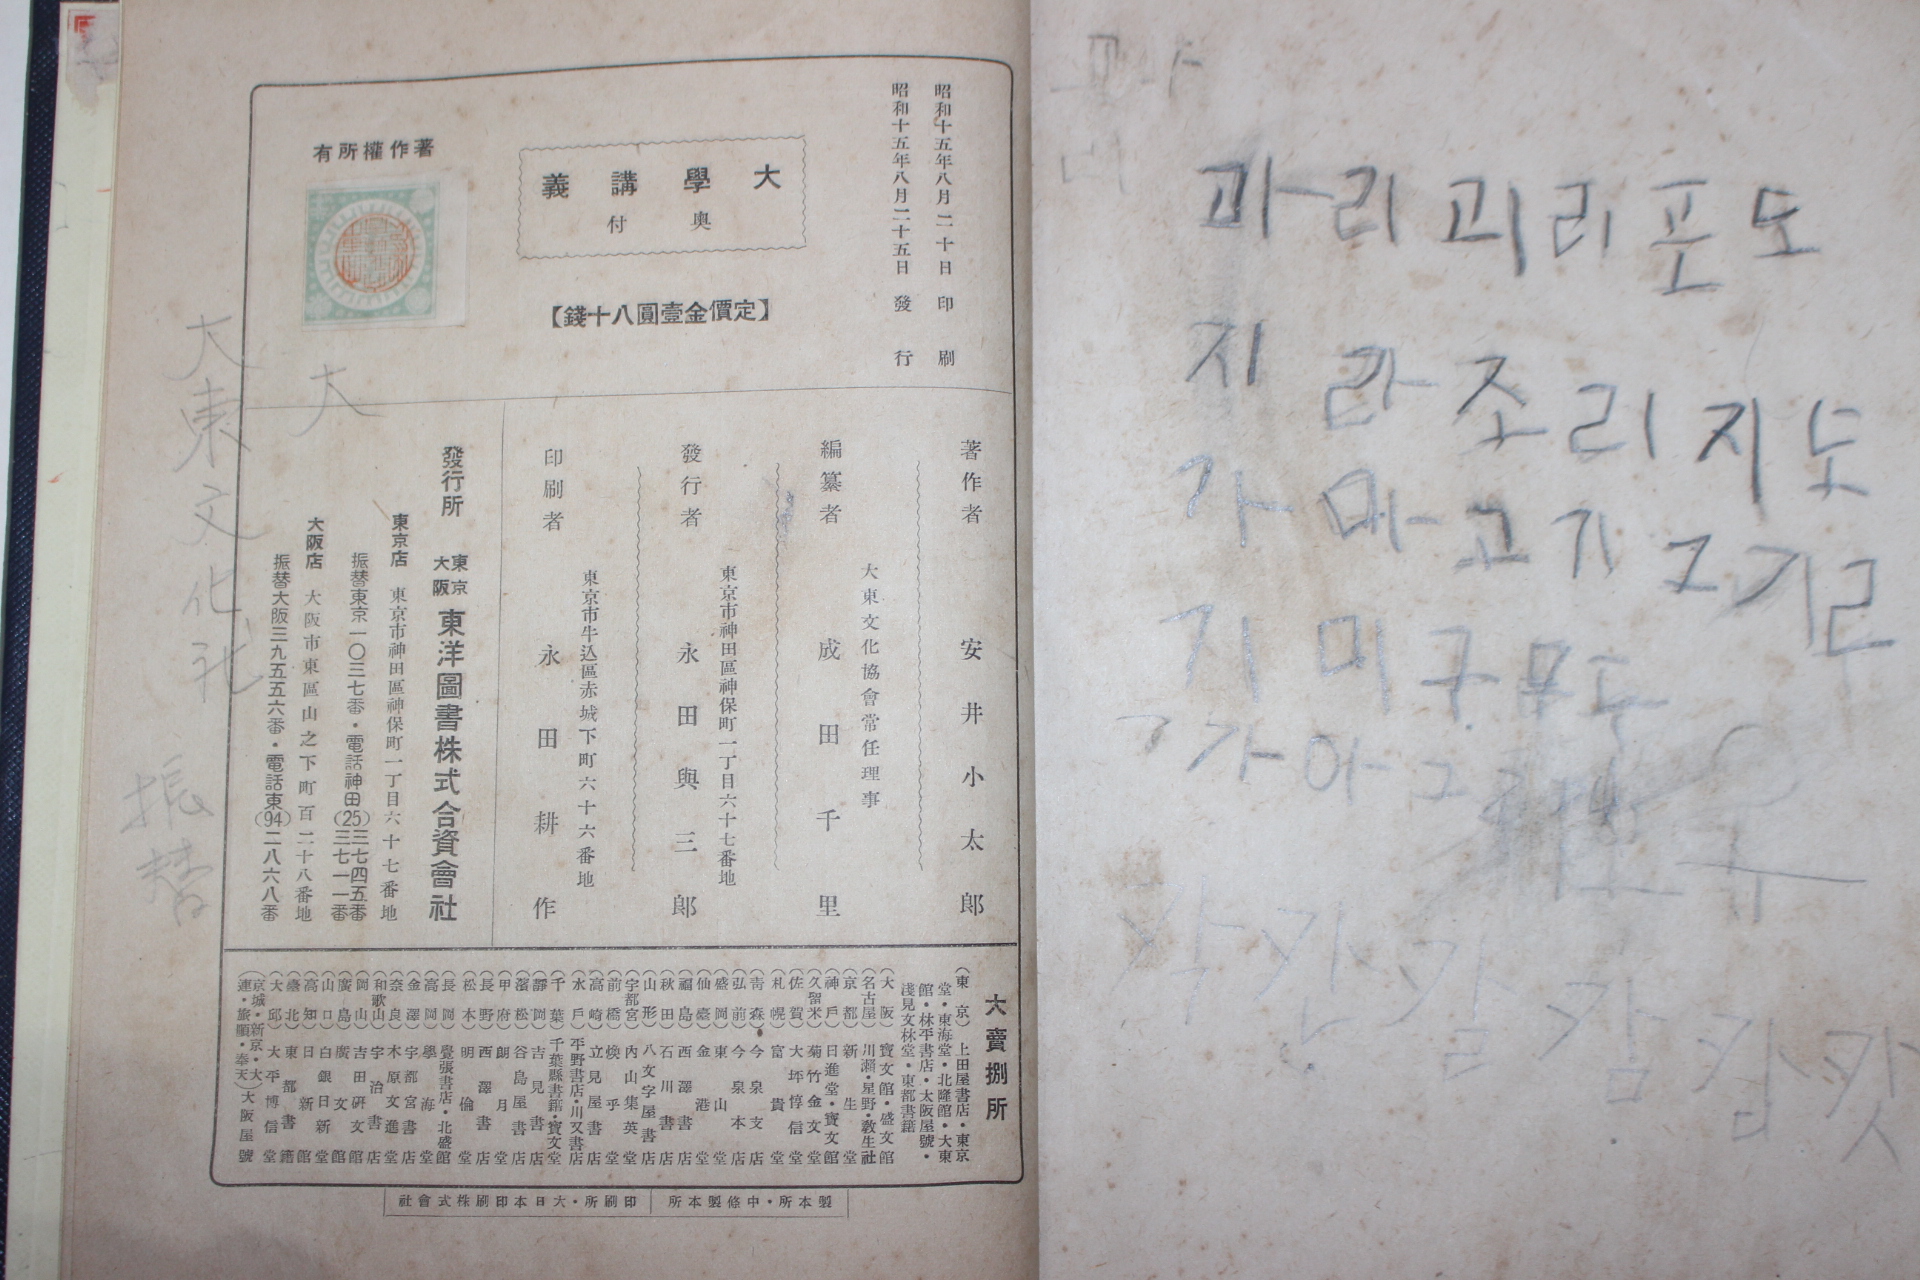 昭和十五年八月二十日 印刷
昭和十五年八月二十五日 發行
大學講義
奥付
【定價金壹圓八十錢】
著作權所有
著作者 安井小太郎
大東文化協會常任理事
編纂者 成田千里
東京市神田區神保町一丁目六十七番地
發行者 永田與三郎
東京市牛込區赤城下町六十六番地
印刷者 永田耕作
發行所 東京 大阪 東洋圖書株式合資會社
東京店 東京市神田區神保町一丁目六十七番地
振替東京一〇三七番・電話神田(25)三七四五番 三七一一番
大阪店 大阪市東區山之下町百二十八番地
振替大阪三九五五六番・電話東(94)二八六八番
大賣捌所
(東京)上田屋書店・東京
堂・東海堂・北隆館・大東
館・林平書店・太阪屋號・
淺見文林堂・東都書籍
(大阪)寶文館・盛文館
(名古屋)川瀬・星野・教生社
(京都)新生堂
(神戶)日進堂・寶文館
(久留米)菊竹金文堂
(佐賀)大坪惇信堂
(札幌)富貴堂
(青森)今泉支店
(弘前)今泉本店
(盛岡)東山堂
(仙臺)金港堂
(福島)西澤書店
(秋田)石川書店
(山形)八文字屋書店
(宇都宮)內山集英堂
(前橋)煥乎堂
(高崎)立見屋書店
(水戶)平野書店・川又書店
(千葉)千葉縣書籍・寶文堂
(靜岡)吉見書店
(濱松)谷島屋書店
(甲府)朗月堂
(長野)西澤書店
(松本)明倫堂
(長岡)覺張書店・北盛館
(高岡)學海堂
(金澤)宇都宮書店
(奈良)木原文進堂
(和歌山)宇治書店
(岡山)吉田硏文館
(廣島)廣文館
(山口)白銀日新堂
(高知)日新館
(臺北)東都書籍
(大邱)大平博信堂
(京城・新京・大
連・旅順・奉天)大阪屋號
製本所・中條製本所
印刷所・大日本印刷株式會社
大東文化社
大
振替
과리괴리포도
지 락조리지도
가마고기그기르
기미구무두
가아그
각간갈감갑갓